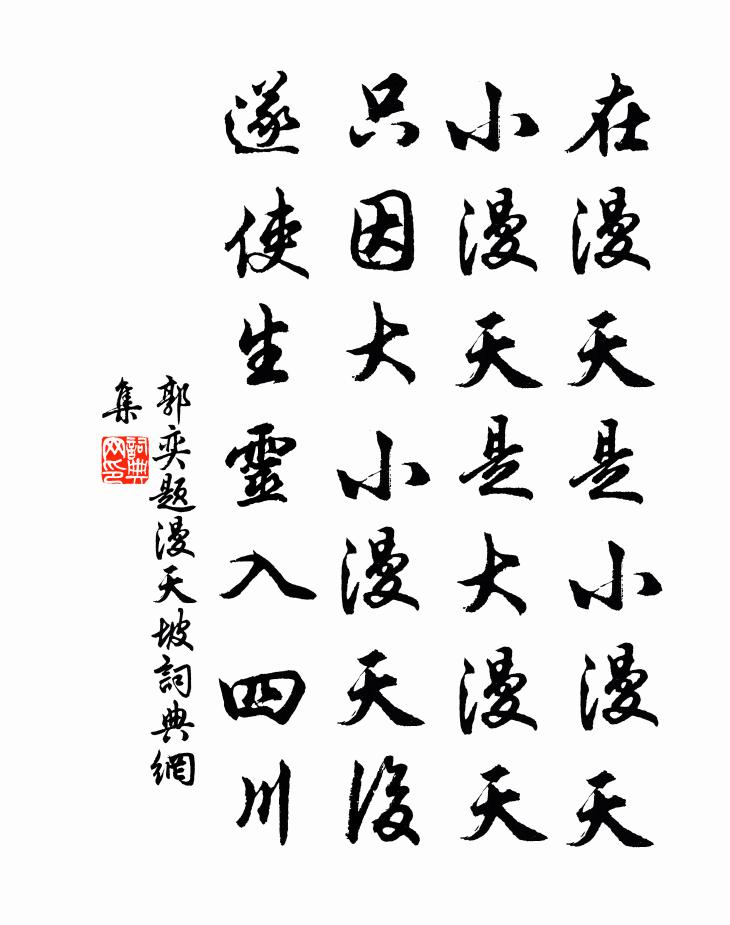 在漫天是小漫天
小漫天是大漫天
只因大小漫天後
遂使生靈入四川
郭奕題漫天坡詞典網
集
詞典網印